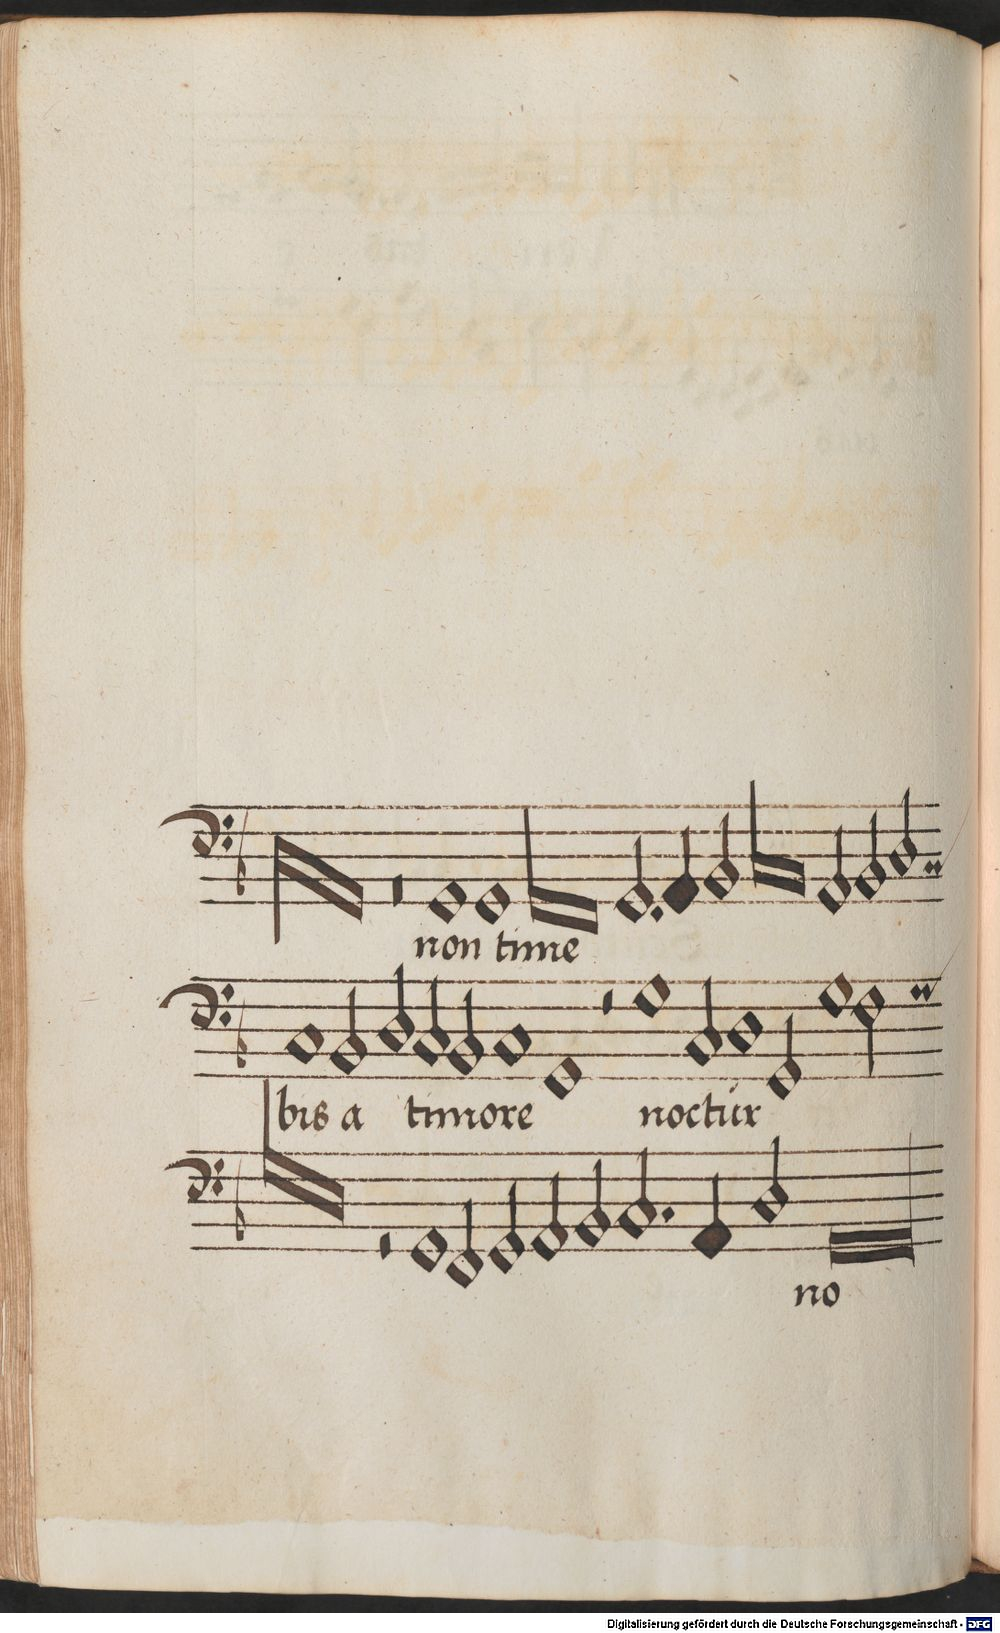 non time
bis a timore noctur
no
Digitalisierung gefördert durch die Deutsche Forschungsgemeinschaft - DFG